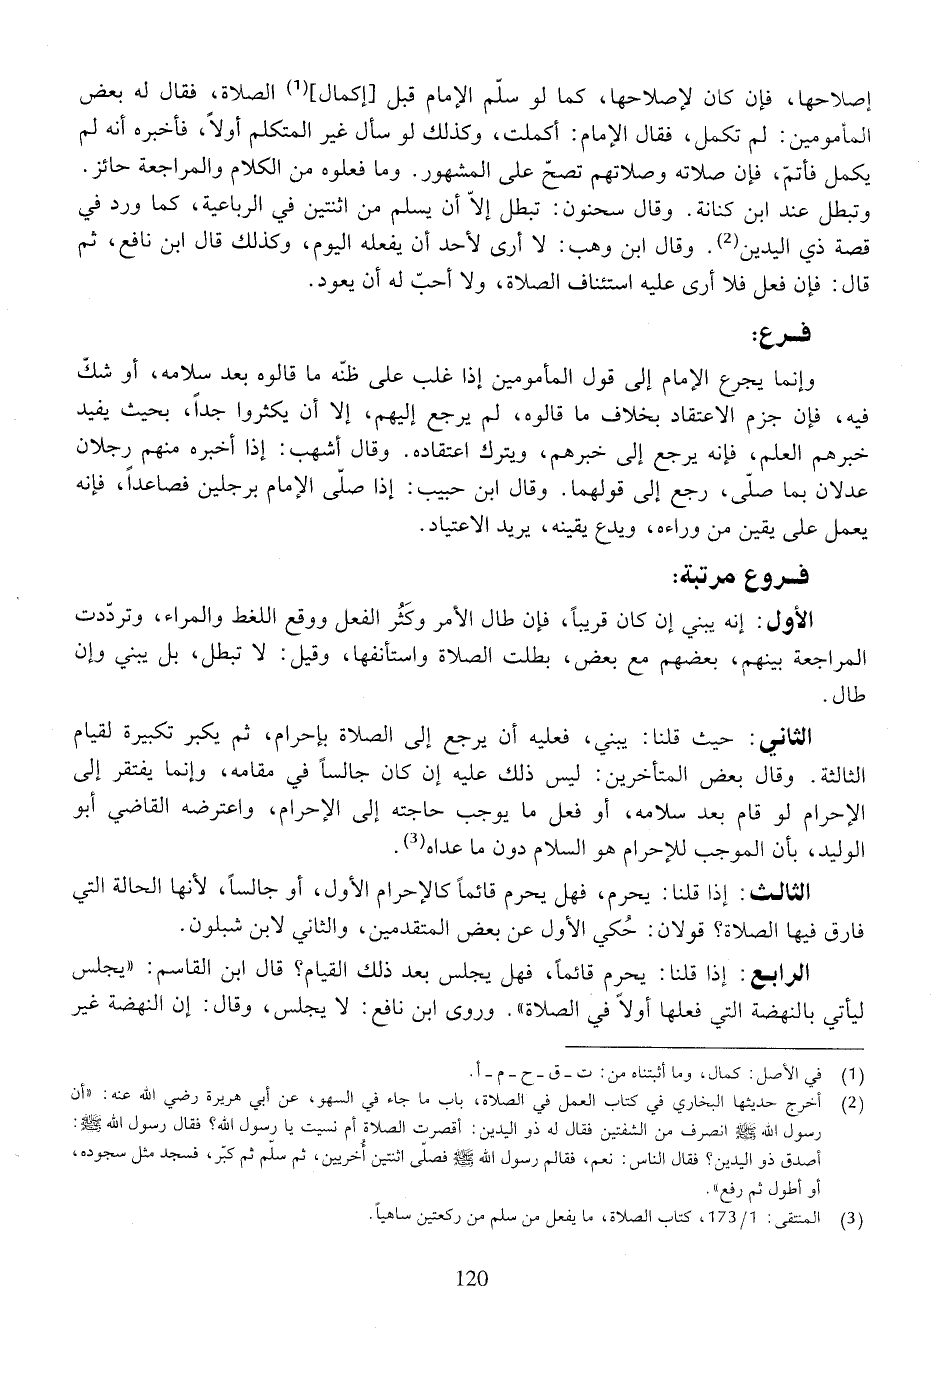 إصلاحها، فإن كان لإصلاحها، كما لو سلّم الإمام قبل [إكمال](1) الصلاة، فقال له بعض
المأمومين: لم تكمل، فقال الإمام: أكملت، وكذلك لو سأل غير المتكلم أولاً، فأخبره أنه لم
يكمل فأتمّ، فإن صلاته وصلاتهم تصحّ على المشهور. وما فعلوه من الكلام والمراجعة حائز.
وتبطل عند ابن كنانة. وقال سحنون: تبطل إلاّ أن يسلم من اثنتين في الرباعية، كما ورد في
قصة ذي اليدين(2). وقال ابن وهب: لا أرى لأحد أن يفعله اليوم، وكذلك قال ابن نافع، ثم
قال: فإن فعل فلا أرى عليه استئناف الصلاة، ولا أحبّ له أن يعود.
فـرع:
وإنما يجرع الإمام إلى قول المأمومين إذا غلب على ظنّه ما قالوه بعد سلامه، أو شكّ
فيه، فإن جزم الاعتقاد بخلاف ما قالوه، لم يرجع إليهم، إلا أن يكثروا جداً، بحيث يفيد
خبرهم العلم، فإنه يرجع إلى خبرهم، ويترك اعتقاده. وقال أشهب: إذا أخبره منهم رجلان
عدلان بما صلّى، رجع إلى قولهما. وقال ابن حبيب: إذا صلّى الإمام برجلين فصاعداً، فإنه
يعمل على يقين من وراءه، ويدع يقينه، يريد الاعتياد.
فـروع مرتبة:
الأول: إنه يبني إن كان قريباً، فإن طال الأمر وكَثُر الفعل ووقع اللغط والمراء، وتردّدت
المراجعة بينهم، بعضهم مع بعض، بطلت الصلاة واستأنفها، وقيل: لا تبطل، بل يبني وإن
طال.
الثاني: حيث قلنا: يبني، فعليه أن يرجع إلى الصلاة بإحرام، ثم يكبر تكبيرة لقيام
الثالثة. وقال بعض المتأخرين: ليس ذلك عليه إن كان جالساً في مقامه، وإنما يفتقر إلى
الإحرام لو قام بعد سلامه، أو فعل ما يوجب حاجته إلى الإحرام، واعترضه القاضي أبو
الوليد، بأن الموجب للإحرام هو السلام دون ما عداه(3).
الثالث: إذا قلنا: يحرم، فهل يحرم قائماً كالإحرام الأول، أو جالساً، لأنها الحالة التي
فارق فيها الصلاة؟ قولان: حُكي الأول عن بعض المتقدمين، والثاني لابن شبلون.
الرابع: إذا قلنا: يحرم قائماً، فهل يجلس بعد ذلك القيام؟ قال ابن القاسم: «يجلس
ليأتي بالنهضة التي فعلها أولاً في الصلاة». وروى ابن نافع: لا يجلس، وقال: إن النهضة غير
(1) في الأصل: كمال، وما أثبتناه من: ت - ق - ح - م - أ.
(2) أخرج حديثها البخاري في كتاب العمل في الصلاة، باب ما جاء في السهو، عن أبي هريرة رضي الله عنه: «أن
رسول الله ﷺ انصرف من الشفتين فقال له ذو اليدين: أقصرت الصلاة أم نسيت يا رسول الله؟ فقال رسول الله ﷺ:
أصدق ذو اليدين؟ فقال الناس: نعم، فقالم رسول الله ﷺ فصلّى اثنتين أُخريين، ثم سلّم ثم كبّر، فسجد مثل سجوده،
أو أطول ثم رفع».
(3) المنتقى: 173/1، كتاب الصلاة، ما يفعل من سلم من ركعتين ساهياً.
120